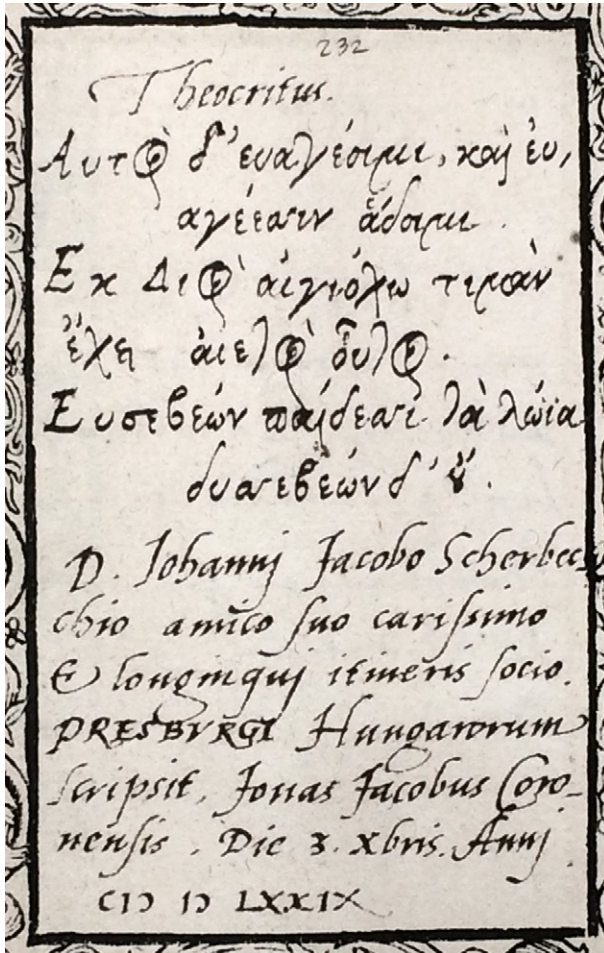 232
Theocritus.
Αυτος δ' ευαγέοιμι, και ευ,
αγέεσσιν άδοιμι.
Εκ Διος αιγιόχω τιμαν
έχει αιετος ουτος.
Ευσεβέων παίδεσσι τα λώϊα
δυσσεβέων δ' ού.
D. Iohannj Jacobo Scherbec
chio amico suo carissimo
& longinquj itineris socio.
PRESBVRGI Hungarorum
scripsit, Jonas Jacobus Coro-
nensis. Die 3. Xbris. Annj
CIↃ IↃ LXXIX